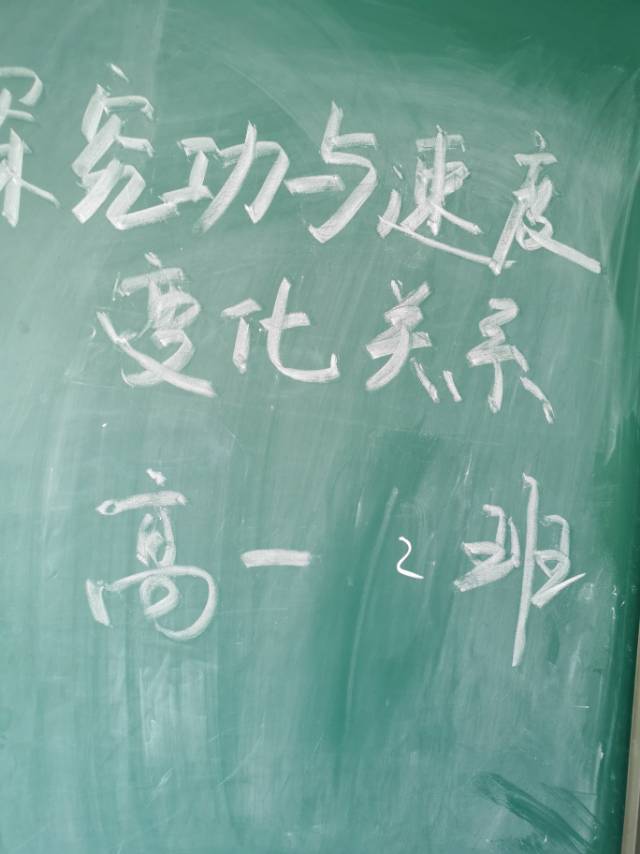 探究功与速度
变化关系
高一 2 班